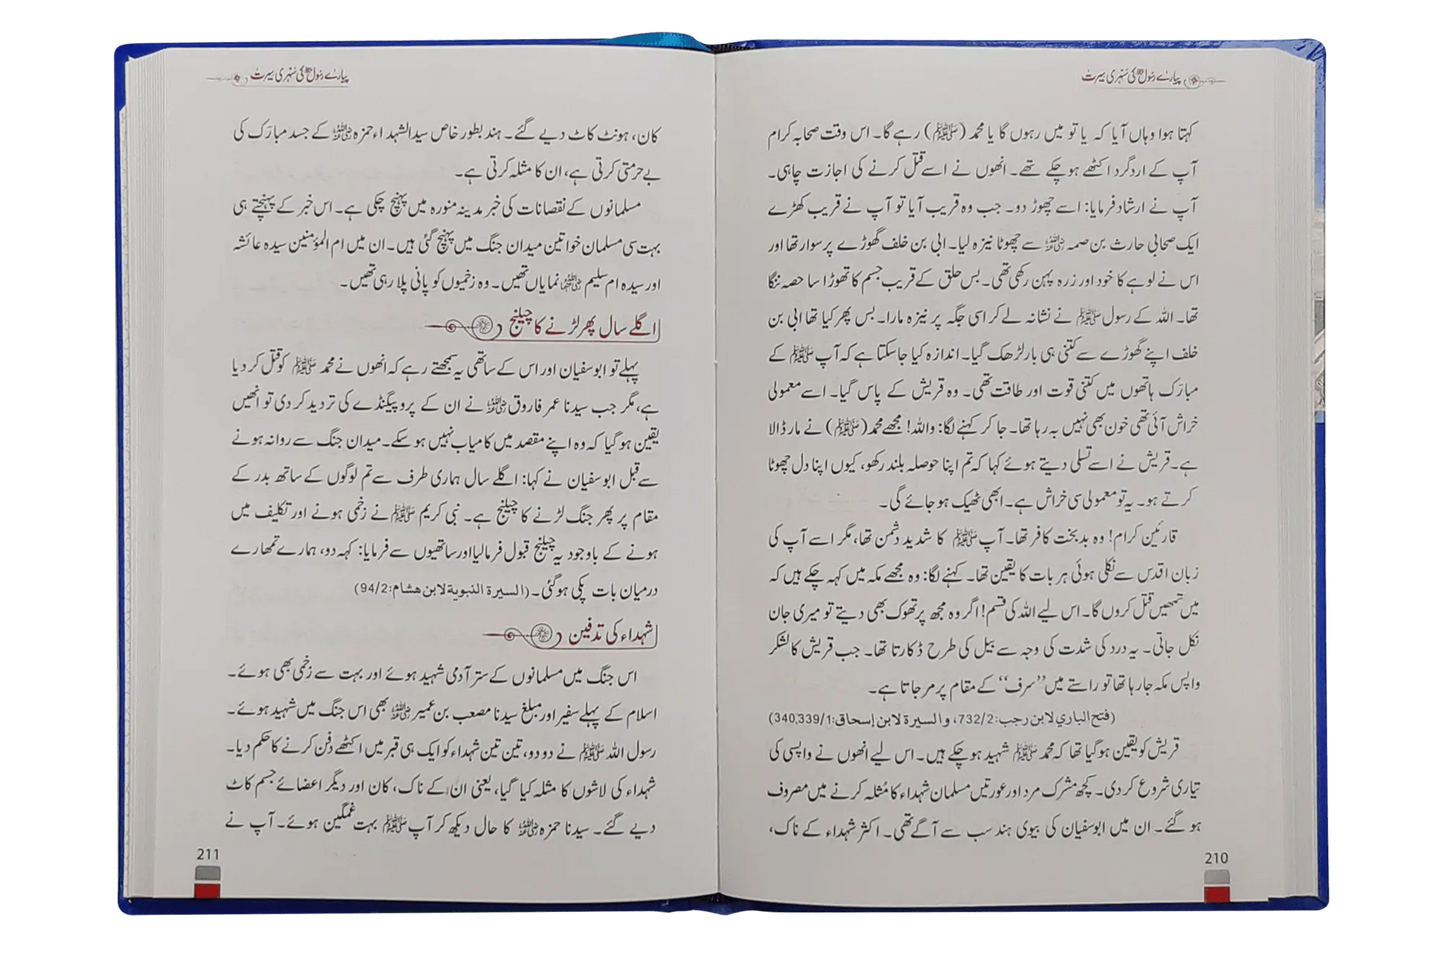 پیارے رسول ﷺ کی سنہری سیرت
کہتا ہوا وہاں آیا کہ یا تو میں رہوں گا یا محمد (ﷺ) رہے گا۔ اس وقت صحابہ کرام
آپ کے اردگرد اکٹھے ہو چکے تھے۔ انھوں نے اسے قتل کرنے کی اجازت چاہی۔
آپ نے ارشاد فرمایا: اسے چھوڑ دو۔ جب وہ قریب آیا تو آپ نے قریب کھڑے
ایک صحابی حارث بن صمہ رضی اللہ عنہ سے چھوٹا نیزہ لیا۔ ابی بن خلف گھوڑے پر سوار تھا اور
اس نے لوہے کا خود اور زرہ پہن رکھی تھی۔ بس حلق کے قریب جسم کا تھوڑا سا حصہ ننگا
تھا۔ اللہ کے رسول ﷺ نے نشانہ لے کر اسی جگہ پر نیزہ مارا۔ بس پھر کیا تھا ابی بن
خلف اپنے گھوڑے سے کتنی ہی بار لڑھک گیا۔ اندازہ کیا جاسکتا ہے کہ آپ ﷺ کے
مبارک ہاتھوں میں کتنی قوت اور طاقت تھی۔ وہ قریش کے پاس گیا۔ اسے معمولی
خراش آئی تھی خون بھی نہیں بہ رہا تھا۔ جا کر کہنے لگا: واللہ! مجھے محمد (ﷺ) نے مار ڈالا
ہے۔ قریش نے اسے تسلی دیتے ہوئے کہا کہ تم اپنا حوصلہ بلند رکھو، کیوں اپنا دل چھوٹا
کرتے ہو۔ یہ تو معمولی سی خراش ہے۔ ابھی ٹھیک ہو جائے گی۔
قارئین کرام! وہ بدبخت کافر تھا۔ آپ ﷺ کا شدید دشمن تھا، مگر اسے آپ کی
زبان اقدس سے نکلی ہوئی ہر بات کا یقین تھا۔ کہنے لگا: وہ مجھے مکہ میں کہہ چکے ہیں کہ
میں تمھیں قتل کروں گا۔ اس لیے اللہ کی قسم! اگر وہ مجھ پر تھوک بھی دیتے تو میری جان
نکل جاتی۔ یہ درد کی شدت کی وجہ سے بیل کی طرح ڈکارتا تھا۔ جب قریش کا لشکر
واپس مکہ جا رہا تھا تو راستے میں ’’سرف‘‘ کے مقام پر مر جاتا ہے۔
(فتح الباري لابن رجب: 732/2، والسيرة لابن إسحاق: 340,339/1)
قریش کو یقین ہو گیا تھا کہ محمد ﷺ شہید ہو چکے ہیں۔ اس لیے انھوں نے واپسی کی
تیاری شروع کر دی۔ کچھ مشرک مرد اور عورتیں مسلمان شہداء کا مُثلہ کرنے میں مصروف
ہو گئے۔ ان میں ابوسفیان کی بیوی ہند سب سے آگے تھی۔ اکثر شہداء کے ناک،
210
پیارے رسول ﷺ کی سنہری سیرت
کان، ہونٹ کاٹ دیے گئے۔ ہند بطور خاص سید الشہداء حمزہ رضی اللہ عنہ کے جسد مبارک کی
بے حرمتی کرتی ہے، ان کا مثلہ کرتی ہے۔
مسلمانوں کے نقصانات کی خبر مدینہ منورہ میں پہنچ چکی ہے۔ اس خبر کے پہنچتے ہی
بہت سی مسلمان خواتین میدان جنگ میں پہنچ گئی ہیں۔ ان میں ام المؤمنین سیدہ عائشہ
اور سیدہ ام سلیم رضی اللہ عنہا نمایاں تھیں۔ وہ زخمیوں کو پانی پلا رہی تھیں۔
اگلے سال پھر لڑنے کا چیلنج
پہلے تو ابوسفیان اور اس کے ساتھی یہ سمجھتے رہے کہ انھوں نے محمد ﷺ کو قتل کر دیا
ہے، مگر جب سیدنا عمر فاروق رضی اللہ عنہ نے ان کے پروپیگنڈے کی تردید کر دی تو انھیں
یقین ہو گیا کہ وہ اپنے مقصد میں کامیاب نہیں ہو سکے۔ میدان جنگ سے روانہ ہونے
سے قبل ابوسفیان نے کہا: اگلے سال ہماری طرف سے تم لوگوں کے ساتھ بدر کے
مقام پر پھر جنگ لڑنے کا چیلنج ہے۔ نبی کریم ﷺ نے زخمی ہونے اور تکلیف میں
ہونے کے باوجود یہ چیلنج قبول فرمالیا اور ساتھیوں سے فرمایا: کہہ دو، ہمارے تمھارے
درمیان بات پکی ہو گئی۔ (السيرة النبوية لابن هشام: 94/2)
شہداء کی تدفین
اس جنگ میں مسلمانوں کے ستر آدمی شہید ہوئے اور بہت سے زخمی بھی ہوئے۔
اسلام کے پہلے سفیر اور مبلغ سیدنا مصعب بن عمیر رضی اللہ عنہ بھی اس جنگ میں شہید ہوئے۔
رسول اللہ ﷺ نے دو دو، تین تین شہداء کو ایک ہی قبر میں اکٹھے دفن کرنے کا حکم دیا۔
شہداء کی لاشوں کا مثلہ کیا گیا، یعنی ان کے ناک، کان اور دیگر اعضائے جسم کاٹ
دیے گئے۔ سیدنا حمزہ رضی اللہ عنہ کا حال دیکھ کر آپ ﷺ بہت غمگین ہوئے۔ آپ نے
211